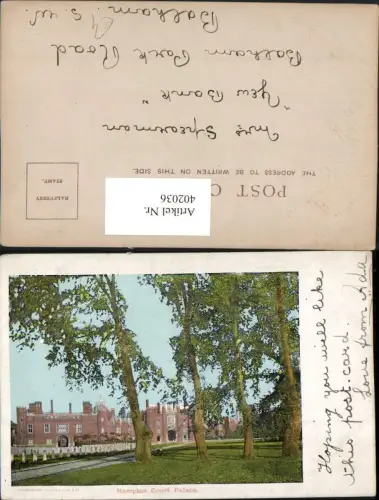 POST C
THE ADDRESS TO BE WRITTEN ON THIS SIDE.
HALFPENNY
STAMP.
Mrs Spearman
"Yew Bank"
Balham Park Road
Balham S.W.
Artikel Nr.
402036
Hampton Court Palace.
Hoping you will like
this post-card.
Love from Ada